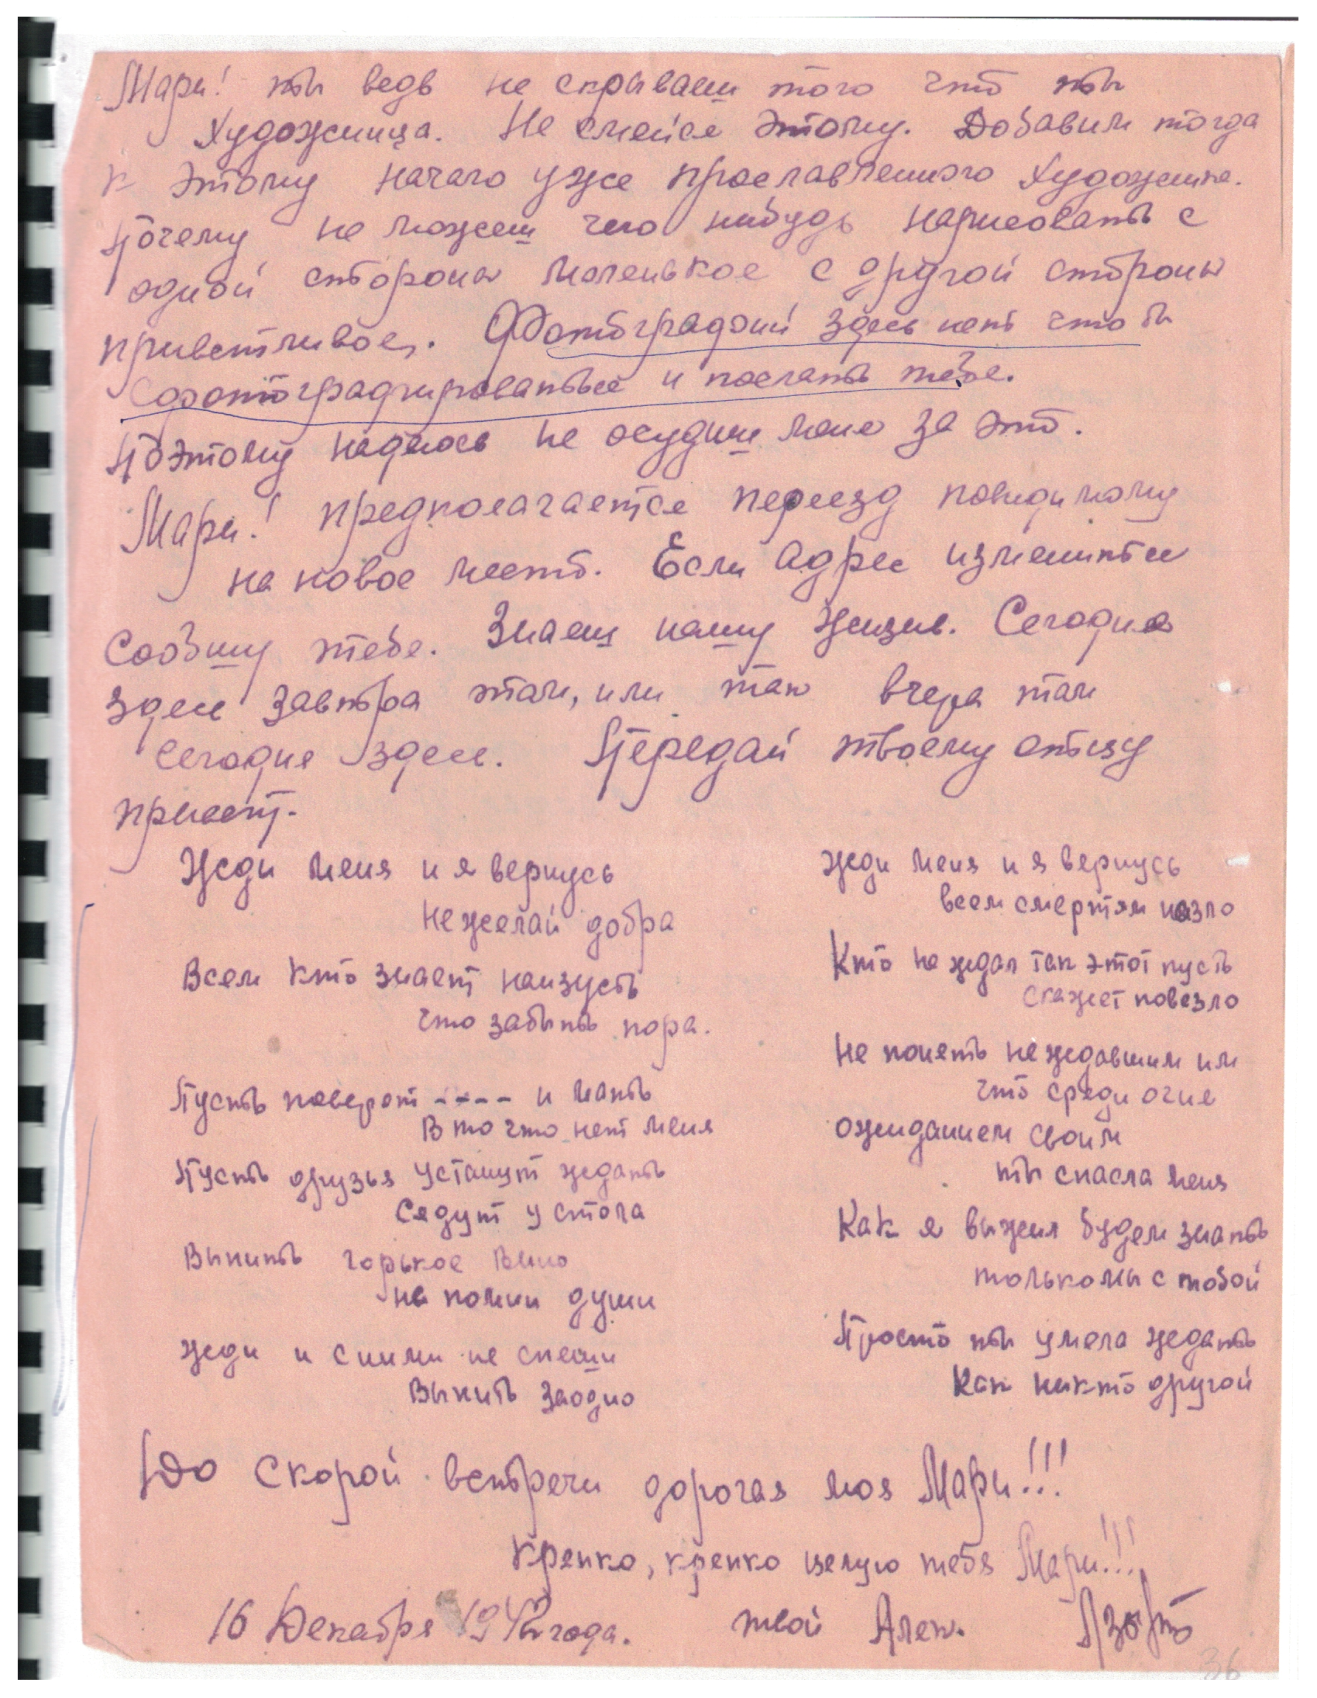 Мари! ты ведь не скрываеш того что ты
Художница. Не смейся этому. Добавим тогда
к этому начало уже прославленного Художника.
Почему не можеш чего нибудь нарисовать с
одной стороны маленькое с другой стороны
приветливое. Фотографий здесь нет что бы
сфотографироваться и послать тебе.
Поэтому надеюсь не осудиш меня за это.
Мари! предполагается переезд повидимому
на новое место. Если адрес изменится
сообшу тебе. Знаеш нашу жизнь. Сегодня
здесь завтра там, или так вчера там
сегодня здесь. Передай твоему отцу
привет.
Жди меня и я вернусь
не желай добра
Всем кто знает наизусть
что забыть пора.
Пусть поверят ---- и мать
В то что нет меня
Пусть друзья устанут ждать
Сядут у стола
Выпить горькое вино
на помин души
жди и с ними не спеши
Выпить заодно
жди меня и я вернусь
всем смертям назло
Кто не ждал так этот пусть
скажет повезло
Не понять не ждавшим им
что среди огня
ожиданием своим
ты спасла меня
Как я выжил будем знать
только мы с тобой
Просто ты умела ждать
Как никто другой
До скорой встречи дорогая моя Мари!!!
крепко, крепко целую тебя Мари!!!
16 Декабря 1942 года. твой Алек.
36